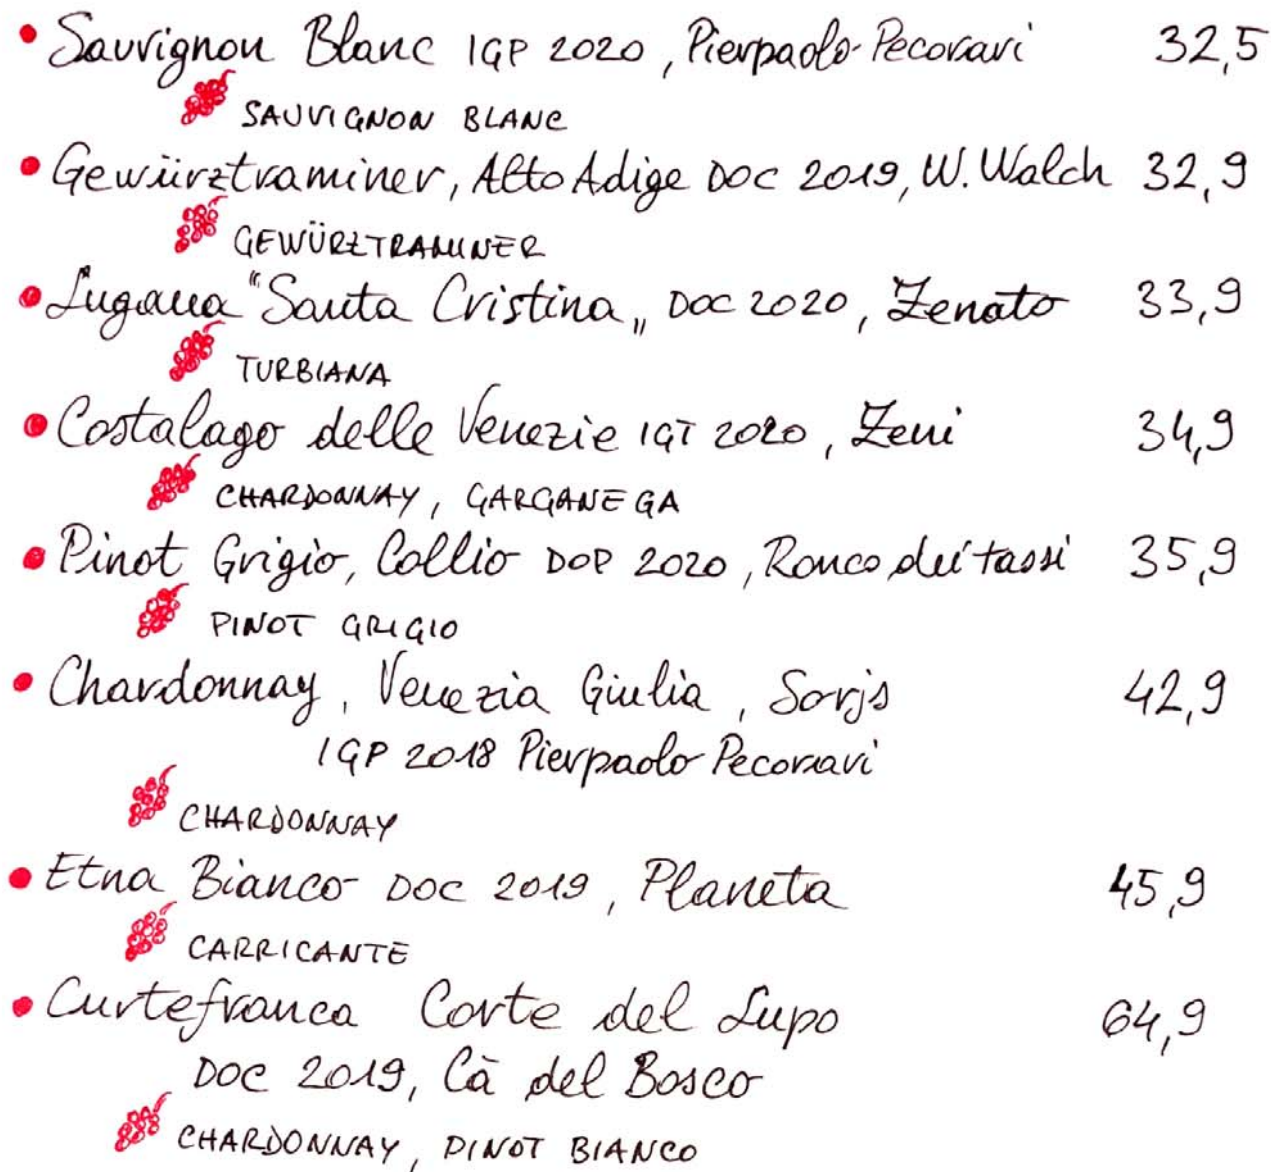 • Sauvignon Blanc IGP 2020, Pierpaolo Pecorari 32,5
SAUVIGNON BLANC
• Gewürztraminer, Alto Adige DOC 2019, W. Walch 32,9
GEWÜRZTRAMINER
• Lugana "Santa Cristina„ DOC 2020, Zenato 33,9
TURBIANA
• Costalago delle Venezie IGT 2020, Zeni 34,9
CHARDONNAY, GARGANEGA
• Pinot Grigio, Collio DOP 2020, Ronco dei tassi 35,9
PINOT GRIGIO
• Chardonnay, Venezia Giulia, Sorjs 42,9
IGP 2018 Pierpaolo Pecorari
CHARDONNAY
• Etna Bianco DOC 2019, Planeta 45,9
CARRICANTE
• Curtefranca Corte del Lupo 64,9
DOC 2019, Cà del Bosco
CHARDONNAY, PINOT BIANCO